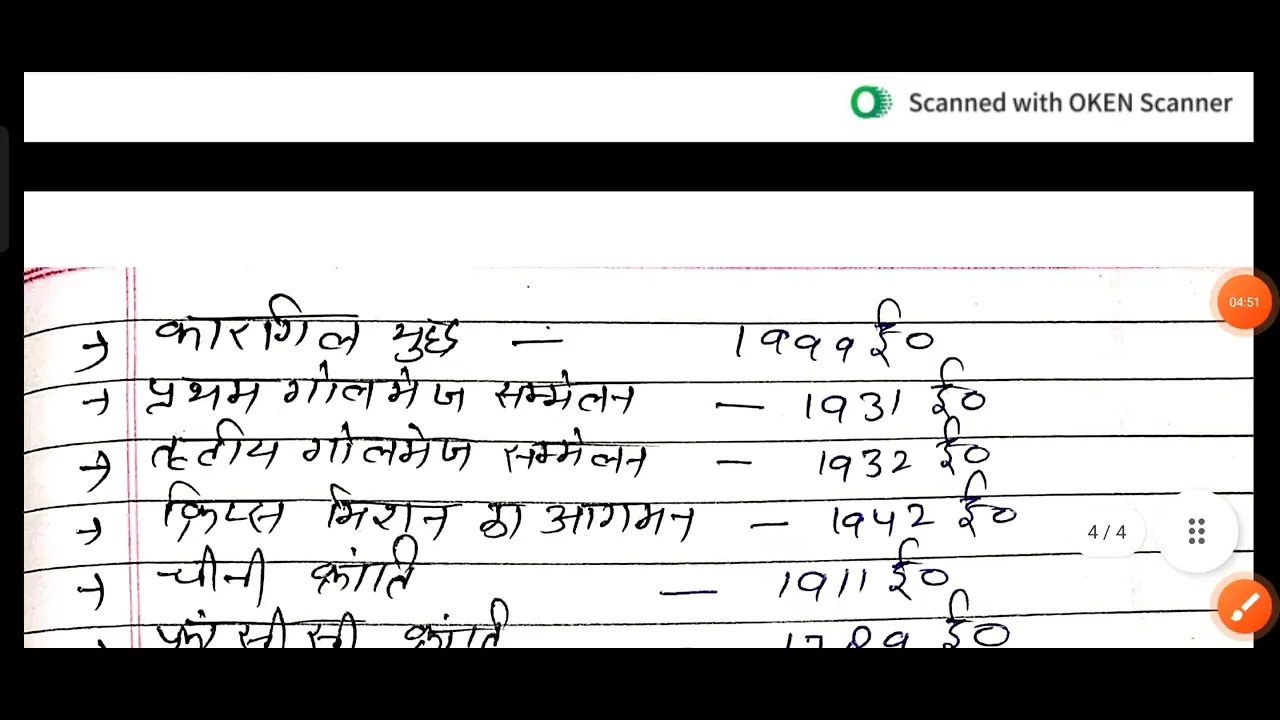 Scanned with OKEN Scanner
04:51
→ कारगिल युद्ध — 1999 ई०
→ प्रथम गोलमेज सम्मेलन — 1931 ई०
→ तृतीय गोलमेज सम्मेलन — 1932 ई०
→ क्रिप्स मिशन का आगमन — 1942 ई०
4 / 4
→ चीनी क्रांति — 1911 ई०
→ फ्रांसीसी क्रांति - 1789 ई०